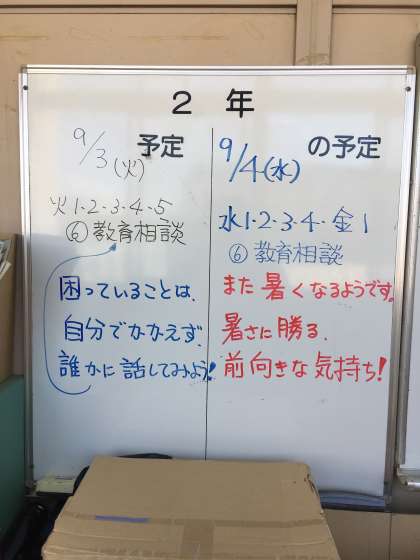 2年
9/3(火) 予定
火1・2・3・4・5
⑥教育相談
困っていることは、
自分でかかえず、
誰かに話してみよう!
9/4(水) の予定
水1・2・3・4・金1
⑥教育相談
また暑くなるようです。
暑さに勝る、
前向きな気持ち!